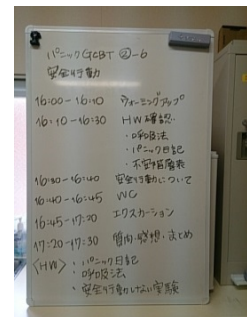 パニックGCBT ②-6
安全行動
16:00-16:10 ウォーミングアップ
16:10-16:30 HW確認
・呼吸法
・パニック日記
・不安階層表
16:30-16:40 安全行動について
16:40-16:45 WC
16:45-17:20 エクスカーション
17:20-17:30 質問・感想・まとめ
〈HW〉・パニック日記
・呼吸法
・安全行動しない実験